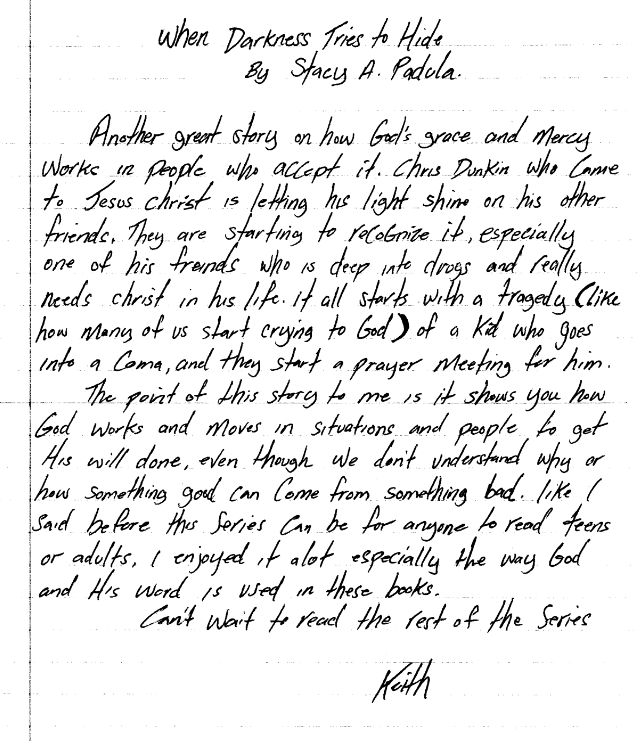 When Darkness Tries to Hide
By Stacy A. Padula.
Another great story on how God's grace and Mercy
Works in people who accept it. Chris Dunkin who Came
to Jesus christ is letting his light shine on his other
friends. They are starting to recognize it, especially
one of his freinds who is deep into drugs and really
needs christ in his life. it all starts with a tragedy (like
how many of us start crying to God) of a Kid who goes
into a Coma, and they start a prayer Meeting for him.
The point of this story to me is it shows you how
God works and moves in situations and people to get
His will done, even though we don't understand why or
how something good can Come from something bad. like I
said before this Series Can be for anyone to read teens
or adults, I enjoyed it alot especially the way God
and His Word is used in these books.
Can't Wait to read the rest of the Series
Keith